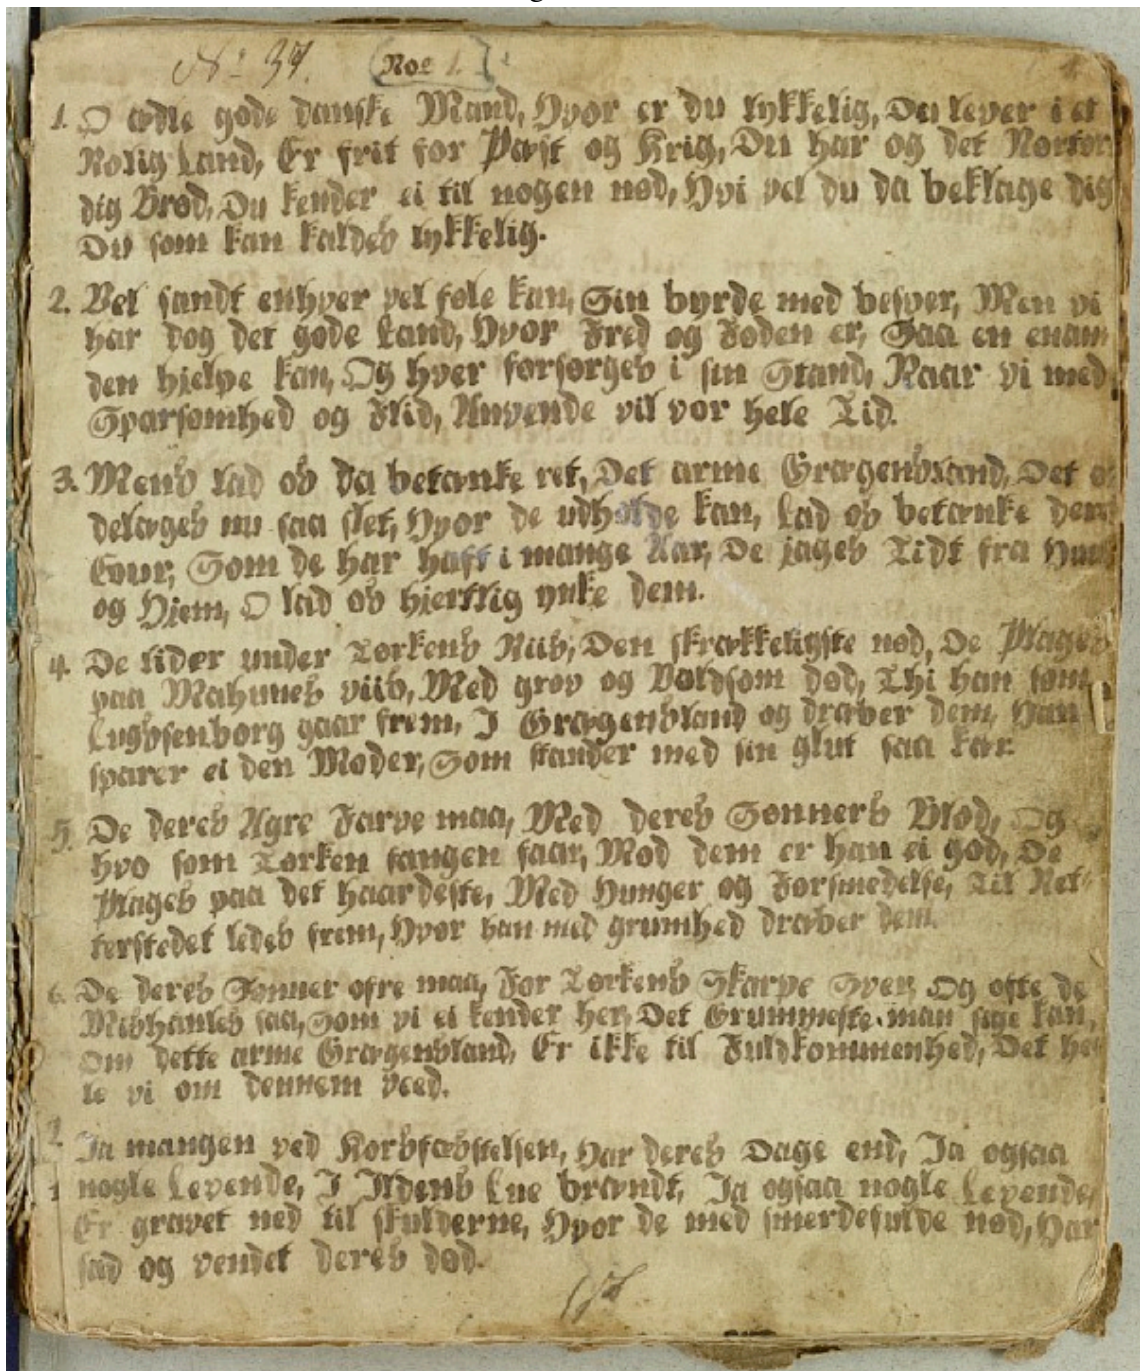 No 37. (Noe 1.)
1. O ædle gode danske Mand, Hvor er du lykkelig, Du lever i et
Rolig Land, Er frit for Pæst og Krig, Du har og det Nørtør
dig Brød, Du kender ei til nogen nød, Hvi vel du da beklage dig
Du som kan kaldes lykkelig.
2. Vel sandt enhver vel føle kan, Sin byrde med besver, Men vi
har dog det gode Land, Hvor Fred og Føden er, Saa en enan
den hjelpe kan, Og hver forsørges i sin Stand, Naar vi med
Sparsomhed og Flid, Anvende vil vor hele Tid.
3. Mens lad os da betænke ret, Det arme Grægensland, Det ø
delæges nu saa slet, Hvor de udholde kan, Lad os betænke dem
Som de har haft i mange Aar, De jages Tidt fra Huus
og Hjem, O lad os hjertlig ynke dem.
4. De lider under Tørkens Riis, Den skrækkeligste nød, De Plages
paa Mahunes viis, Med grov og Voldsom død, Thi han som
Lugssenborg gaar frem, I Grægensland og dræber dem, Han
sparer ei den Moder, Som stander med sin glut saa kær.
5. De deres Agre Farve maa, Med deres Sønners Blod, Og
hvo som Tørken fangen faar, Mod dem er han ei god, De
Plages paa det haardeste, Med Hunger og Forsmedelse, Til Ret-
terstedet ledes frem, Hvor han med grumhed dræber dem.
6. De deres Sønner ofre maa, For Tørkens Skarpe Sver, Og ofte de
Mishanles saa, Som vi ei kender her, Det Grummeste man sige kan,
Om dette arme Grægensland, Er ikke til Fuldkommenhed, Det he
le vi om dennem veed.
7. Ja mangen ved Korsfæstelsen, Har deres Dage end, Ja ogsaa
nogle Levende, I Ildens Lue brændt, Ja ogsaa nogle Levende,
Er gravet ned til skulderne, Hvor de med smerdefulde nød, Har
sad og vendet deres død.